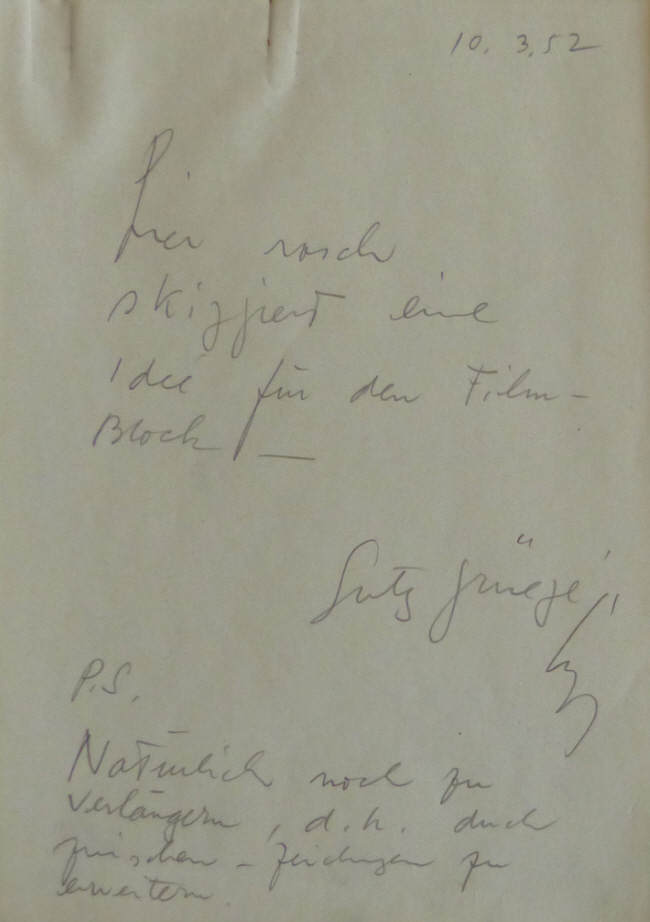 10. 3. 52
Hier rasch
skizziert eine
Idee für den Film-
Block —
Gute Grüße,
P.S.
Natürlich noch zu
verlängern, d.h. durch
zwischen-Zeichungen zu
erweitern.